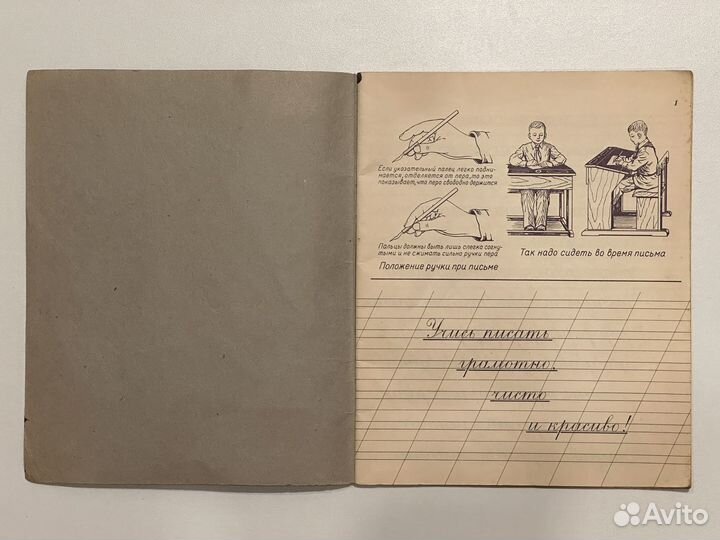 1
Если указательный палец легко подни-
мается, отделяется от пера, то это
показывает, что перо свободно держится
Пальцы должны быть лишь слегка согну-
тыми и не сжимать сильно ручки пера
Положение ручки при письме
Так надо сидеть во время письма
Учись писать
грамотно,
чисто
и красиво!
Avito